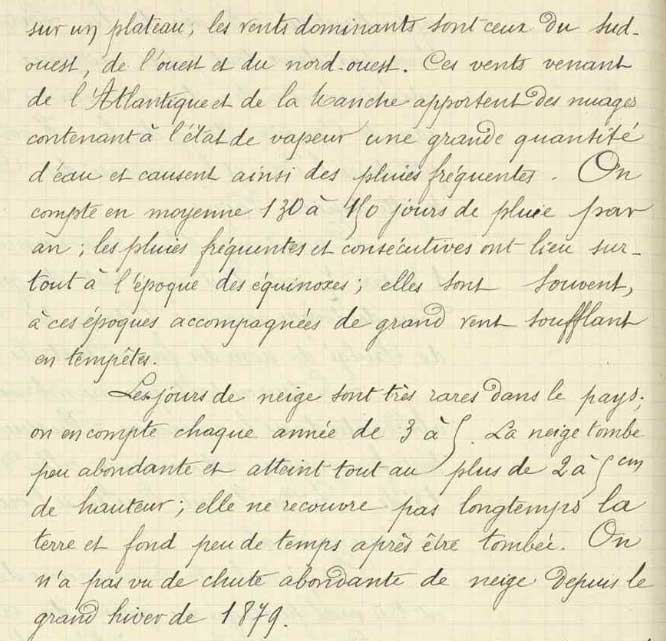 sur un plateau, les vents dominants sont ceux du sud-
ouest, de l'ouest et du nord-ouest. Ces vents venant
de l'Atlantique et de la Manche apportent des nuages
contenant à l'état de vapeur une grande quantité
d'eau et causent ainsi des pluies fréquentes. On
compte en moyenne 130 à 150 jours de pluie par
an ; les pluies fréquentes et consécutives ont lieu sur-
tout à l'époque des équinoxes ; elles sont souvent,
à ces époques accompagnées de grand vent soufflant
en tempêtes.
Les jours de neige sont très rares dans le pays ;
on en compte chaque année de 3 à 5. La neige tombe
peu abondante et atteint tout au plus de 2 à 5 cm
de hauteur ; elle ne recouvre pas longtemps la
terre et fond peu de temps après être tombée. On
n'a pas vu de chute abondante de neige depuis le
grand hiver de 1879.